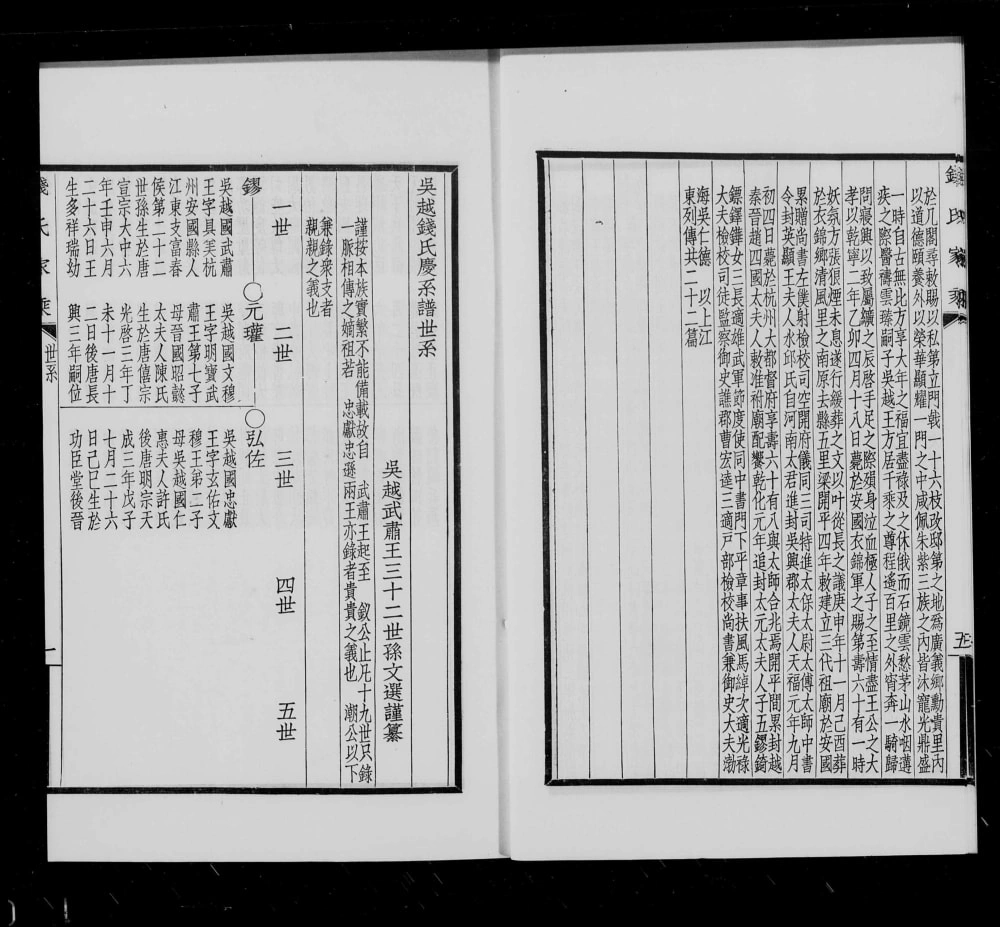 錢氏家乘
五
於凡閣尋敕賜以私第立門戟一十六枝改邸第之地爲廣義鄉勳貴里內
以道德頤養外以榮華顯耀一門之中咸佩朱紫三族之內皆沐寵光鼎盛
一時自古無比方享大年之福宜盡祿及之休俄而石鏡雲愁茅山水咽遘
疾之際醫禱雲臻嗣子吳越王方居千乘之尊程遙百里之外宵奔一騎歸
問寢興以致屬纊之辰啓手足之際殞身泣血極人子之至情盡王公之大
孝以乾寧二年乙卯四月十八日薨於安國衣錦軍之賜第壽六十有一時
妖氛方張狼煙未息遂行緩葬之文以叶從長之議庚申年十一月己酉葬
於衣錦鄉清風里之南原去縣五里梁開平四年敕建立三代祖廟於安國
累贈尚書左僕射檢校司空開府儀同三司特進太保太尉太傅太師中書
令封英顯王夫人水邱氏自河南太君進封吳興郡太夫人天福元年九月
初四日薨於杭州大都督府享壽六十有八與太師合兆焉開平間累封越
秦晉趙四國太夫人敕准祔廟配饗乾化元年追封太元太夫人子五鏐錡
鏢鐸鏵女三長適雄武軍節度使同中書門下平章事扶風馬綽次適光祿
大夫檢校司徒監察御史譙郡曹宏達三適戸部檢校尚書兼御史大夫渤
海吳仁德 以上江
東列傳共二十二篇
吳越錢氏慶系譜世系
吳越武肅王三十二世孫文選謹纂
謹按本族實繁不能備載故自 武肅王起至 釵公止凡十九世只錄
一脈相傳之嫡祖若 忠獻忠遜兩王亦錄者貴貴之義也 潮公以下
兼錄衆支者
親親之義也
一世 二世 三世 四世 五世
鏐 元瓘 弘佐
吳越國武肅
王字具美杭
州安國縣人
江東支富春
侯第二十二
世孫生於唐
宣宗大中六
年壬申六月
二十六日王
生多祥瑞幼
吳越國文穆
王字明寶武
肅王第七子
母晉國昭懿
太夫人陳氏
生於唐僖宗
光啓三年丁
未十一月十
二日後唐長
興三年嗣位
吳越國忠獻
王字玄佑文
穆王第二子
母吳越國仁
惠夫人許氏
後唐明宗天
成三年戊子
七月二十六
日己巳生於
功臣堂後晉
錢氏家乘
世系
一